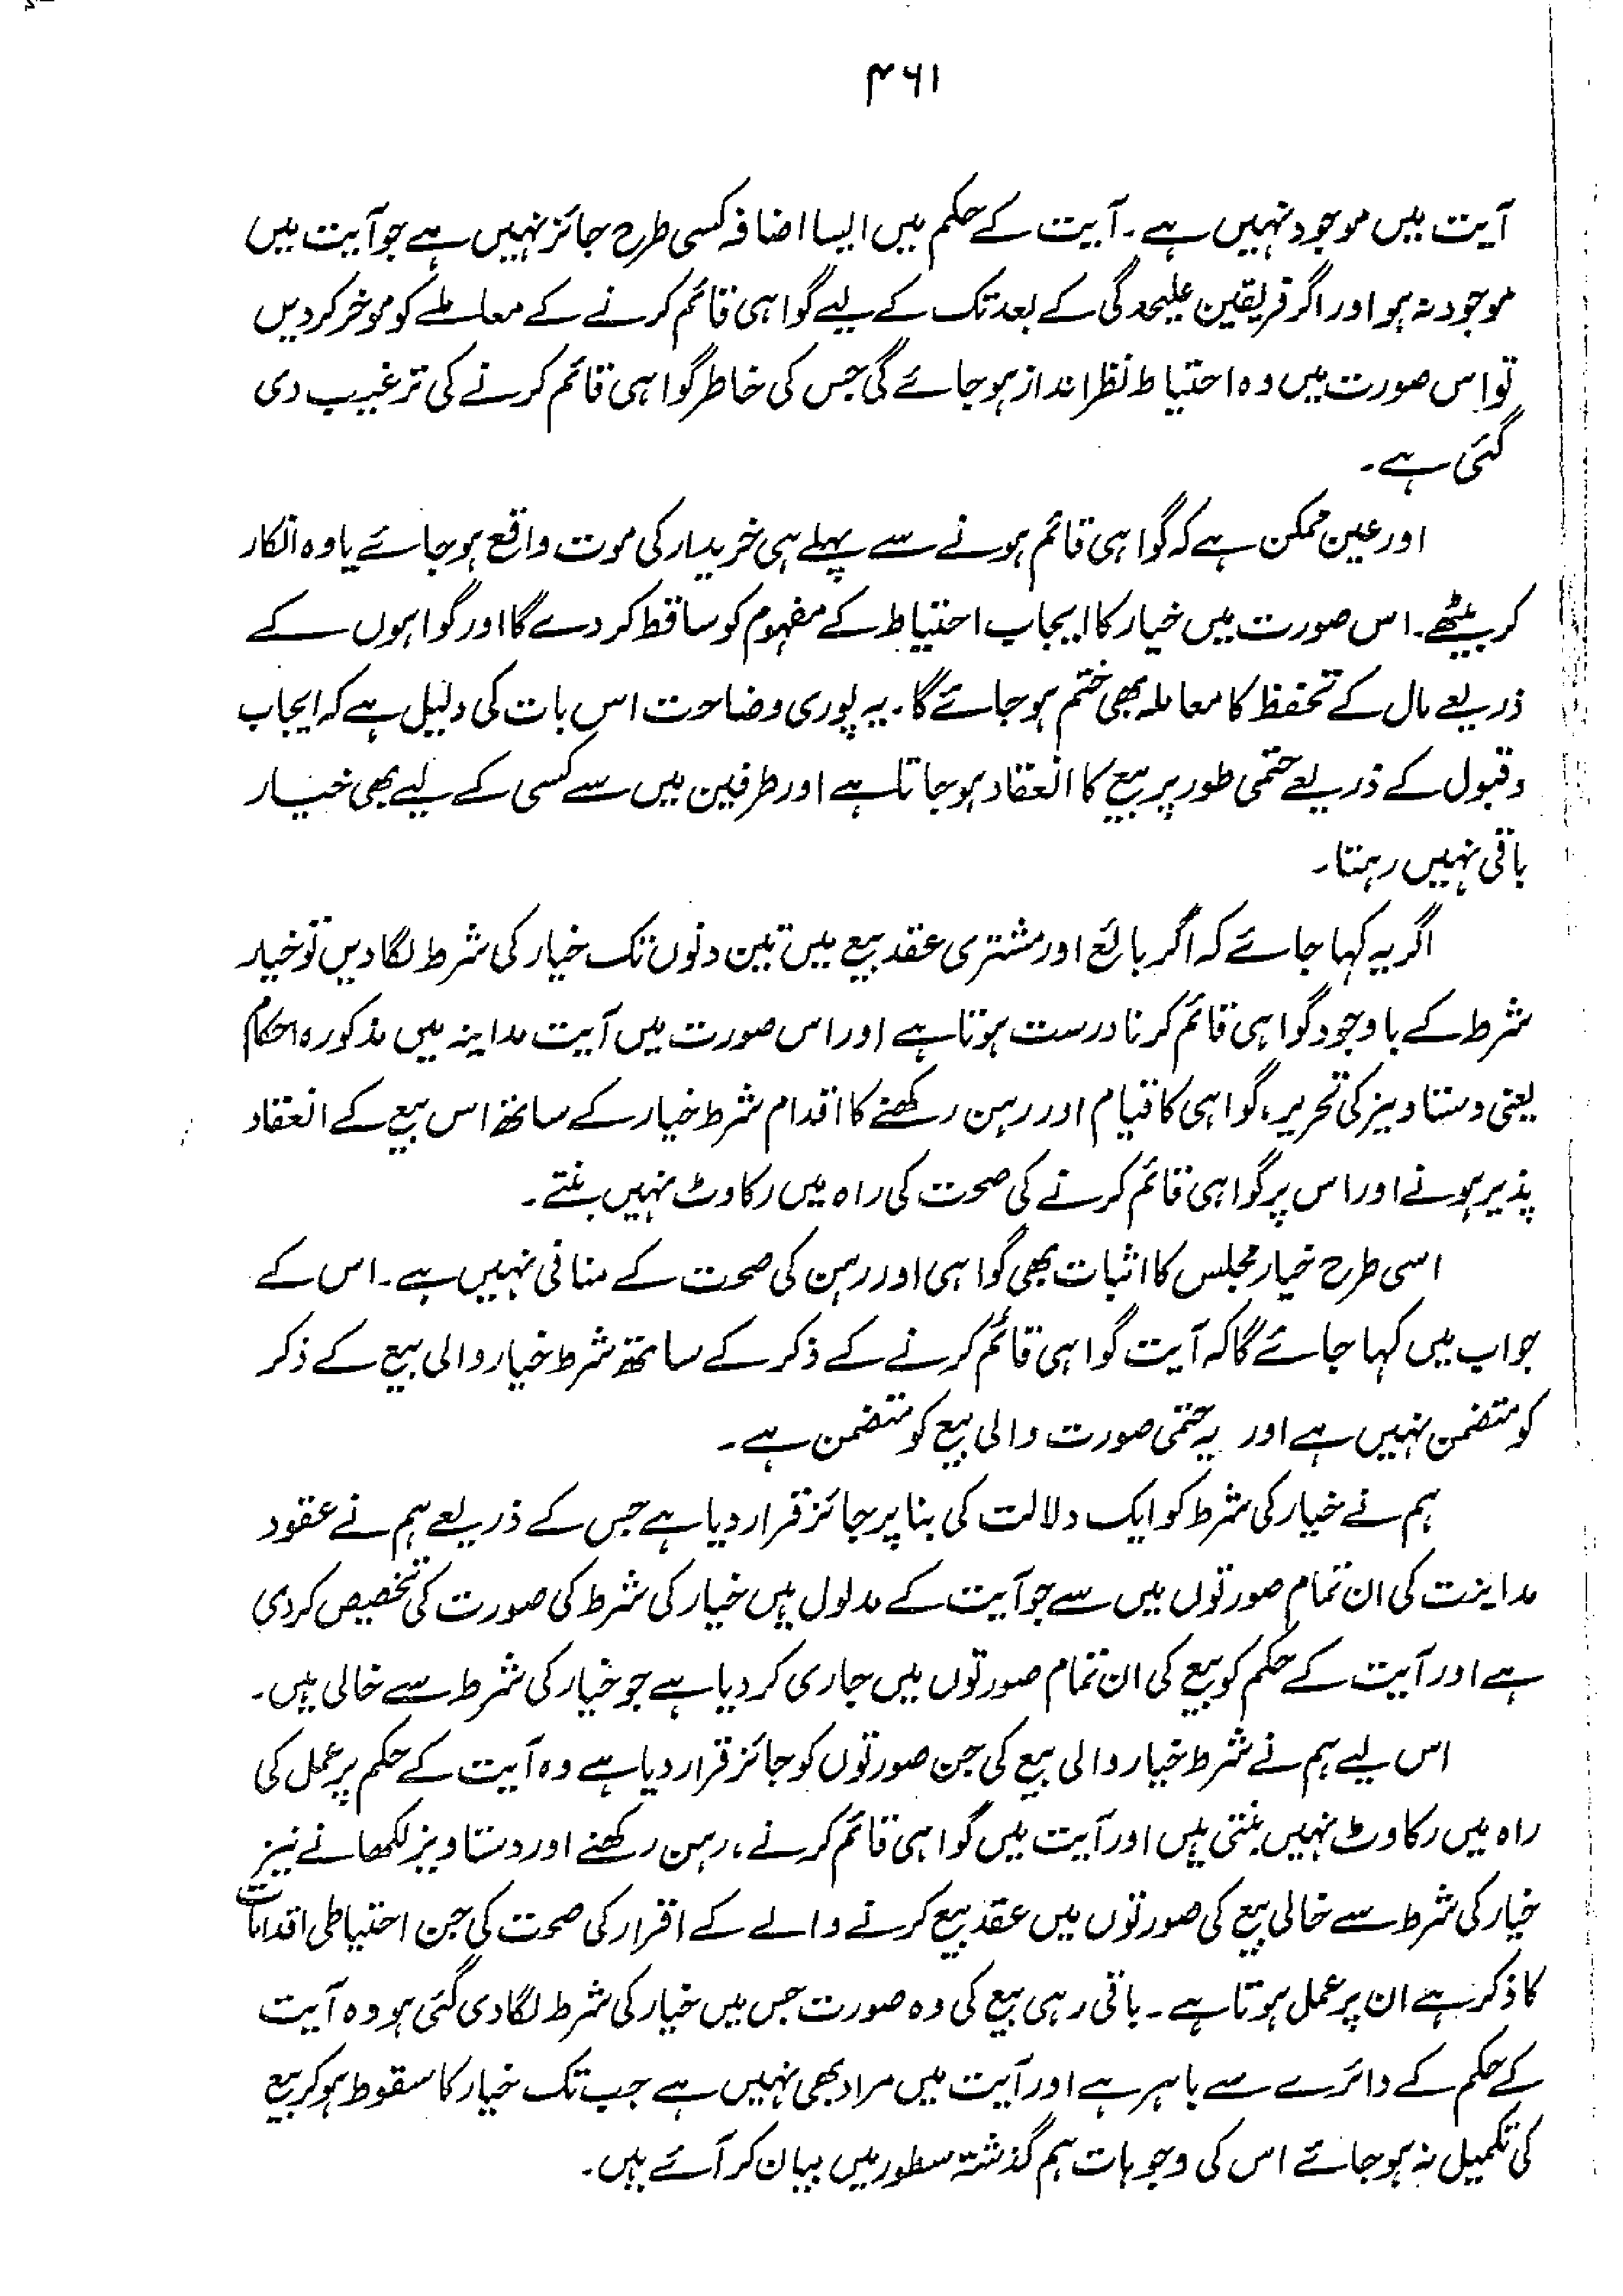 ۴۶۱
آیت میں موجود نہیں ہے۔ آیت کے حکم میں ایسا اضافہ کسی طرح جائز نہیں ہے جو آیت میں
موجود نہ ہو اور اگر فریقین علیحدگی کے بعد تک کے لیے گواہی قائم کرنے کے معاملے کو موخر کردیں
تو اس صورت میں وہ احتیاط نظر انداز ہوجائے گی جس کی خاطر گواہی قائم کرنے کی ترغیب دی
گئی ہے۔
اور عین ممکن ہے کہ گواہی قائم ہونے سے پہلے ہی خریدار کی موت واقع ہوجائے یا وہ انکار
کر بیٹھے۔ اس صورت میں خیار کا ایجاب احتیاط کے مفہوم کو ساقط کر دے گا اور گواہوں کے
ذریعے مال کے تحفظ کا معاملہ بھی ختم ہوجائے گا۔ یہ پوری وضاحت اس بات کی دلیل ہے کہ ایجاب
و قبول کے ذریعے حتمی طور پر بیع کا انعقاد ہوجاتا ہے اور طرفین میں سے کسی کے لیے بھی خیار
باقی نہیں رہتا۔
اگر یہ کہا جائے کہ اگر بائع اور مشتری عقد بیع میں تین دنوں تک خیار کی شرط لگادیں تو خیار
شرط کے باوجود گواہی قائم کرنا درست ہوتا ہے اور اس صورت میں آیت مداینہ میں مذکورہ احکام
یعنی دستاویز کی تحریر، گواہی کا قیام اور رہن رکھنے کا اقدام شرط خیار کے ساتھ اس بیع کے انعقاد
پذیر ہونے اور اس پر گواہی قائم کرنے کی صحت کی راہ میں رکاوٹ نہیں بنتے۔
اسی طرح خیار مجلس کا اثبات بھی گواہی اور رہن کی صحت کے منافی نہیں ہے۔ اس کے
جواب میں کہا جائے گا کہ آیت گواہی قائم کرنے کے ذکر کے ساتھ شرط خیار والی بیع کے ذکر
کو متضمن نہیں ہے اور یہ حتمی صورت والی بیع کو متضمن ہے۔
ہم نے خیار کی شرط کو ایک دلالت کی بنا پر جائز قرار دیا ہے جس کے ذریعے ہم نے عقود
مداینت کی ان تمام صورتوں میں سے جو آیت کے مدلول ہیں خیار کی شرط کی صورت کی تخصیص کردی
ہے اور آیت کے حکم کو بیع کی ان تمام صورتوں میں جاری کر دیا ہے جو خیار کی شرط سے خالی ہیں۔
اس لیے ہم نے شرط خیار والی بیع کی جن صورتوں کو جائز قرار دیا ہے وہ آیت کے حکم پر عمل کی
راہ میں رکاوٹ نہیں بنتی ہیں اور آیت میں گواہی قائم کرنے، رہن رکھنے اور دستاویز لکھانے نیز
خیار کی شرط سے خالی بیع کی صورتوں میں عقد بیع کرنے والے کے اقرار کی صحت کی جن احتیاطی اقدامات
کا ذکر ہے ان پر عمل ہوتا ہے۔ باقی رہی بیع کی وہ صورت جس میں خیار کی شرط لگادی گئی ہو وہ آیت
کے حکم کے دائرے سے باہر ہے اور آیت میں مراد بھی نہیں ہے جب تک خیار کا سقوط ہو کر بیع
کی تکمیل نہ ہوجائے اس کی وجوہات ہم گذشتہ سطور میں بیان کر آئے ہیں۔